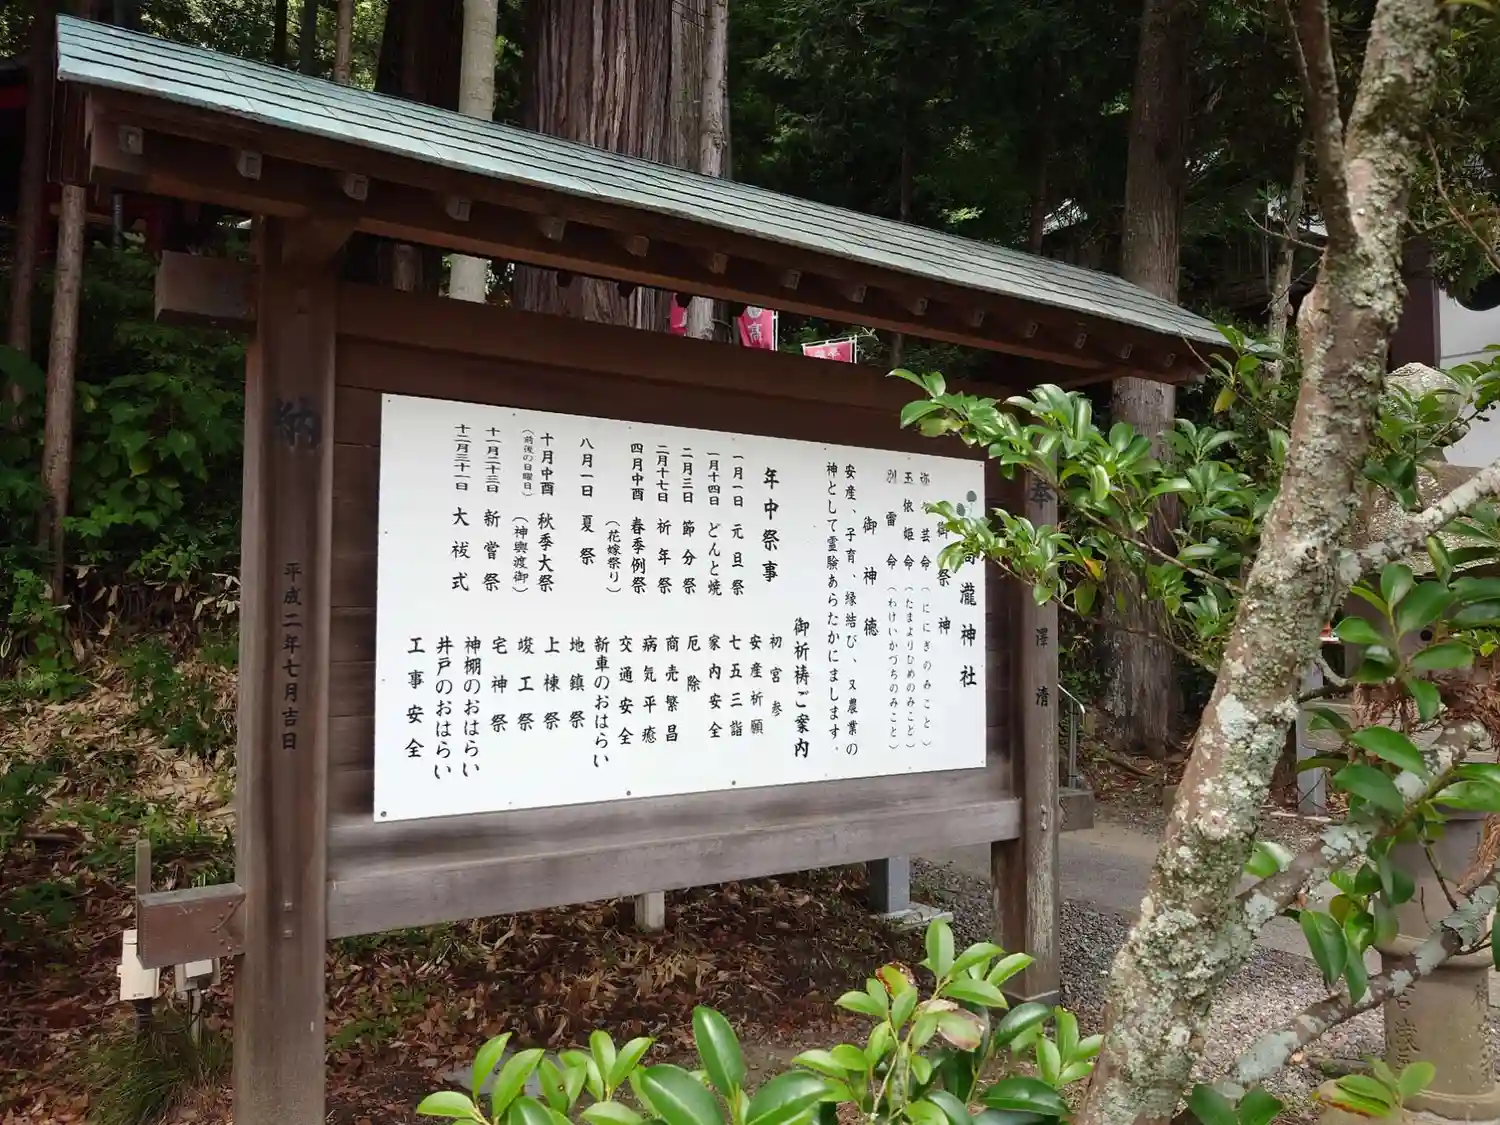 高瀧神社
御祭神
芸命(ににぎのみこと)
玉依姫命(たまよりひめのみこと)
別雷命(わけいかづちのみこと)
御神徳
安産、子育、縁結び、又農業の
神として霊験あらたかにまします。
年中祭事
一月一日 元旦祭
一月十四日 どんと焼
二月三日 節分祭
二月十七日 祈年祭
四月中酉 春季例祭
(花嫁祭り)
八月一日 夏祭
十月中酉 秋季大祭
(前後の日曜日) (神輿渡御)
十一月二十三日 新嘗祭
十二月三十一日 大祓式
御祈祷ご案内
初宮参
安産祈願
七五三詣
家内安全
厄除
商売繁昌
病気平癒
交通安全
新車のおはらい
地鎮祭
上棟祭
竣工祭
宅神祭
神棚のおはらい
井戸のおはらい
工事安全
奉
澤清
納
平成二年七月吉日
高